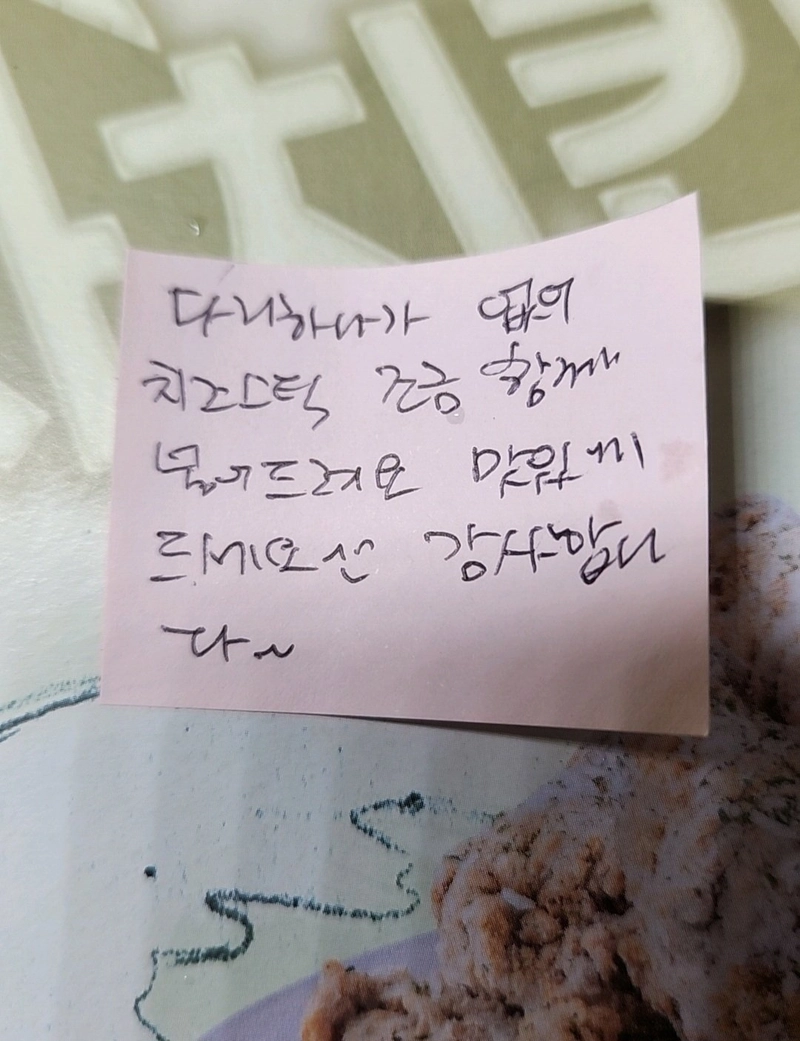 치킨
다리하나가 없의
치즈스틱 조금 함께
넣어드려요 맛있게
드세요선 감사합니
다~